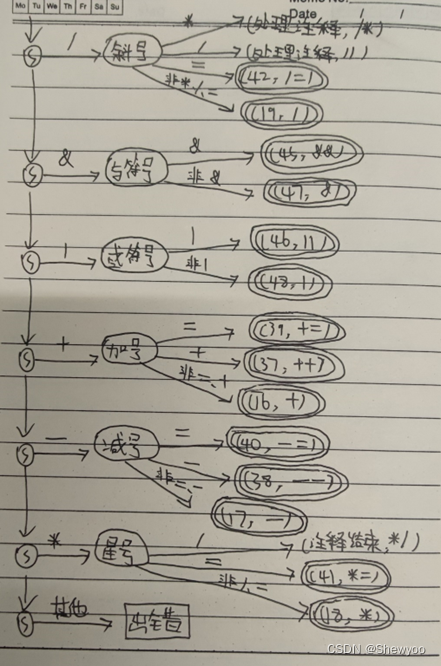 Mo Tu We Th Fr Sa Su
Memo No.
Date / /
*
(处理注释, /*)
S / 斜号 /
(处理注释, //)
=
(42, /=)
非*,/,=
(19, /)
S & 与符号 &
(45, &&)
非&
(47, &)
S | 或符号 |
(46, ||)
非|
(48, |)
S + 加号 =
(39, +=)
+
(37, ++)
非=,+
(16, +)
S - 减号 =
(40, -=)
-
(38, --)
非=,-
(17, -)
S * 星号 /
(注释结束, */)
=
(41, *=)
非/,=
(18, *)
S 其他 出错
CSDN @Shewyoo